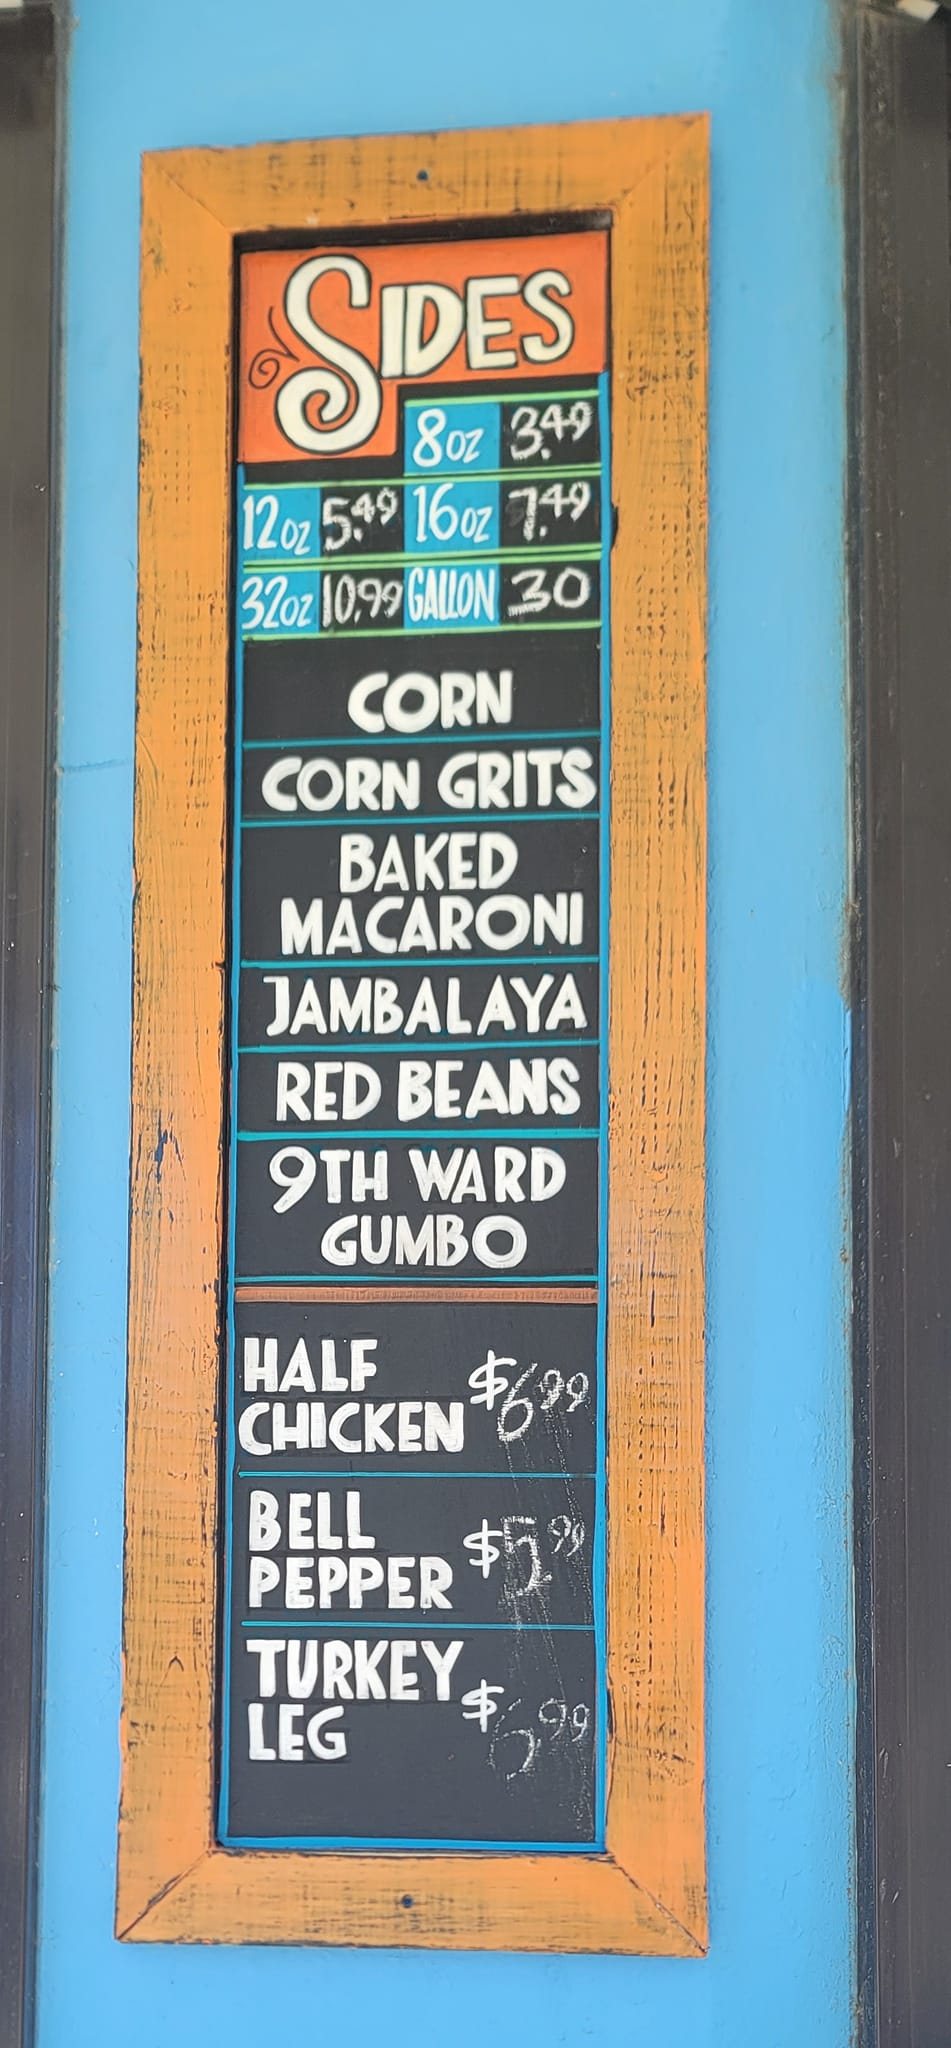 SIDES
8oz 3.49
12oz 5.49 16oz 7.49
32oz 10.99 GALLON 30
CORN
CORN GRITS
BAKED
MACARONI
JAMBALAYA
RED BEANS
9TH WARD
GUMBO
HALF
CHICKEN $6.99
BELL
PEPPER $5.99
TURKEY
LEG $6.99